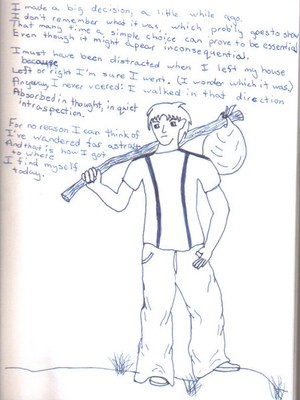 I made a big decision, a little while ago.
I don't remember what it was, which probilly goes to show
That many time a simple choice can prove to be essential
Even though it might apear inconsequential.
I must have been distracted when I left my house
because
Left or right I'm sure I went. (I wonder which it was)
Anyway I never veered: I walked in that direction
Absorbed in thought, in quiet
intraspection.
For no reason I can think of
I've wandered far astray
And that is how I got
to where
I find myself
today.